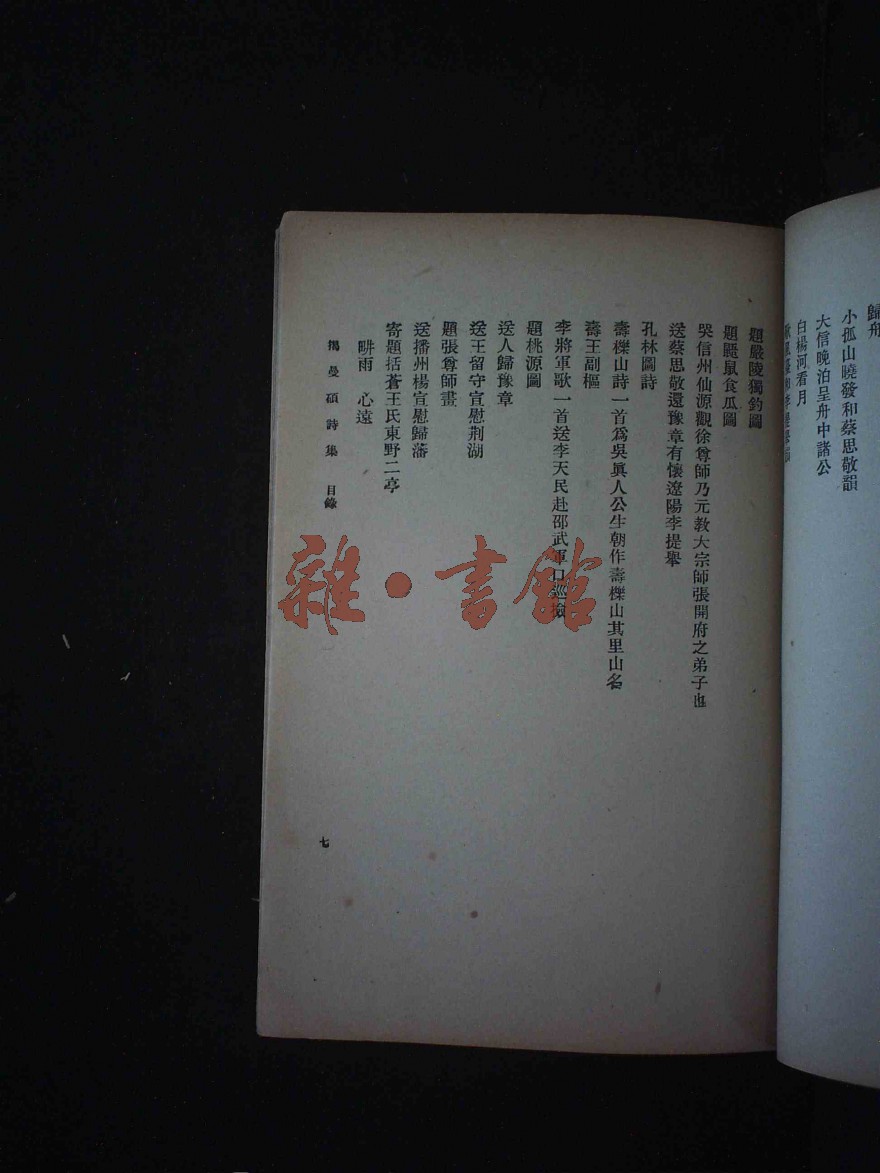 歸舟
小孤山曉發和蔡思敬韻
大信晚泊呈舟中諸公
白楊河看月
題嚴陵獨釣圖
題鼴鼠食瓜圖
哭信州仙源觀徐尊師乃元教大宗師張開府之弟子也
送蔡思敬還豫章有懷遼陽李提舉
孔林圖詩
壽櫟山詩一首爲吳眞人公生朝作壽櫟山其里山名
壽王副樞
李將軍歌一首送李天民赴邵武軍口巡檢
題桃源圖
送人歸豫章
送王留守宣慰荆湖
題張尊師畫
送播州楊宣慰歸藩
寄題括蒼王氏東野二亭
畊雨 心遠
揭曼碩詩集 目錄
七
雜·書館